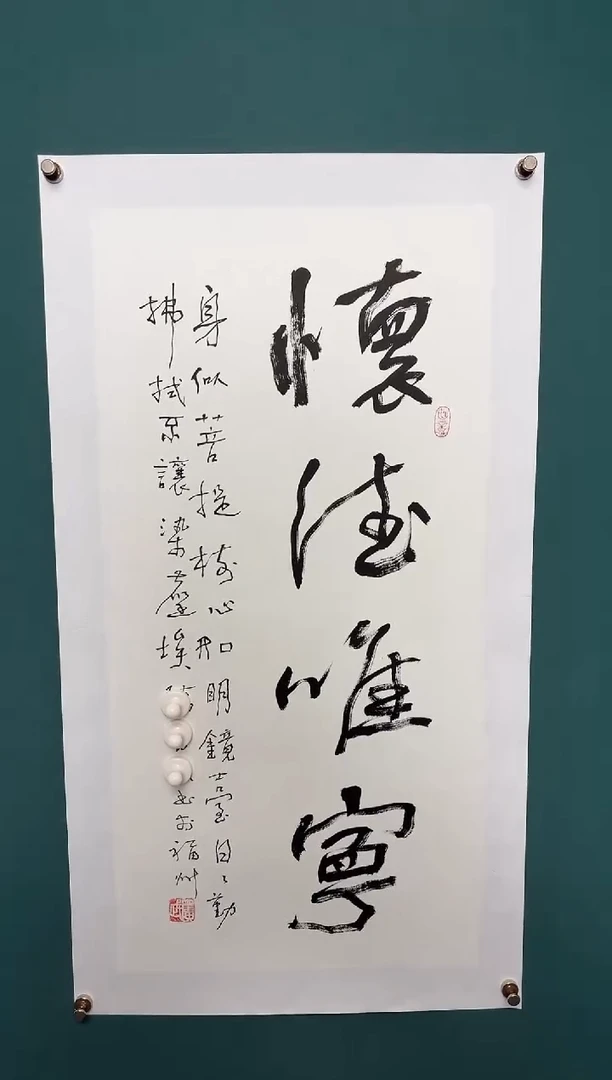 懷德唯寧
身似菩提樹心如明鏡臺日〻勤
拂拭不讓染塵埃書於福州